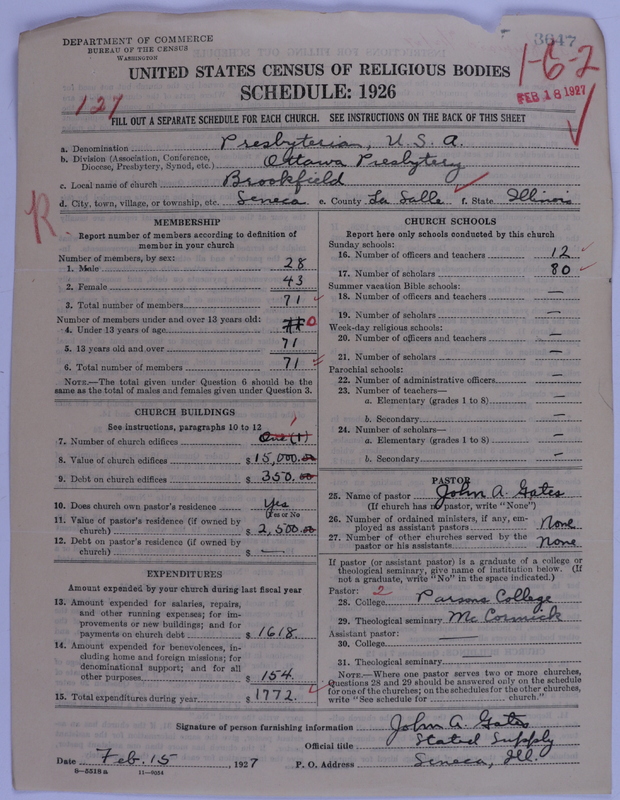 DEPARTMENT OF COMMERCE
BUREAU OF THE CENSUS
WASHINGTON
3647
1-6-2
FEB 18 1927
UNITED STATES CENSUS OF RELIGIOUS BODIES
SCHEDULE: 1926
127
FILL OUT A SEPARATE SCHEDULE FOR EACH CHURCH. SEE INSTRUCTIONS ON THE BACK OF THIS SHEET
a. Denomination Presbyterian, U.S.A.
b. Division (Association, Conference, Diocese, Presbytery, Synod, etc.) Ottawa Presbytery
c. Local name of church Brookfield
d. City, town, village, or township, etc. Seneca e. County La Salle f. State Illinois
R
MEMBERSHIP
Report number of members according to definition of
member in your church
Number of members, by sex:
1. Male 28
2. Female 43
3. Total number of members 71
Number of members under and over 13 years old:
4. Under 13 years of age 0
5. 13 years old and over 71
6. Total number of members 71
NOTE.—The total given under Question 6 should be
same as the total of males and females given under Question 3.
CHURCH BUILDINGS
See instructions, paragraphs 10 to 12
7. Number of church edifices One (1) 1
8. Value of church edifices $ 15,000.00
9. Debt on church edifices $ 350.00
10. Does church own pastor's residence Yes
(Yes or No
11. Value of pastor's residence (if owned by
church) $ 2,500.00
12. Debt on pastor's residence (if owned by
church) $ —
EXPENDITURES
Amount expended by your church during last fiscal year
13. Amount expended for salaries, repairs,
and other running expenses; for im-
provements or new buildings; and for
payments on church debt $ 1618.
14. Amount expended for benevolences, in-
cluding home and foreign missions; for
denominational support; and for all
other purposes $ 154.
15. Total expenditures during year $ 1772.
CHURCH SCHOOLS
Report here only schools conducted by this church
Sunday schools:
16. Number of officers and teachers 12
17. Number of scholars 80
Summer vacation Bible schools:
18. Number of officers and teachers —
19. Number of scholars —
Week-day religious schools:
20. Number of officers and teachers —
21. Number of scholars —
Parochial schools:
22. Number of administrative officers —
23. Number of teachers—
a. Elementary (grades 1 to 8) —
b. Secondary —
24. Number of scholars—
a. Elementary (grades 1 to 8) —
b. Secondary —
PASTOR
25. Name of pastor John A. Gates
(If church has no pastor, write "None")
26. Number of ordained ministers, if any, em-
ployed as assistant pastors None
27. Number of other churches served by the
pastor or his assistants None
If pastor (or assistant pastor) is a graduate of a college or
theological seminary, give name of institution below. (If
not a graduate, write "No" in the space indicated.)
Pastor: 2
28. College Parsons College
29. Theological seminary McCormick
Assistant pastor: —
30. College —
31. Theological seminary
NOTE.—Where one pastor serves two or more churches,
Questions 28 and 29 should be answered only on the schedule
for one of the churches; on the schedules for the other churches,
write "See schedule for church."
Signature of person furnishing information John A. Gates
Official title Stated Supply
Date Feb. 15, 1927 P. O. Address Seneca, Ill.
8—5518 a 11—9054